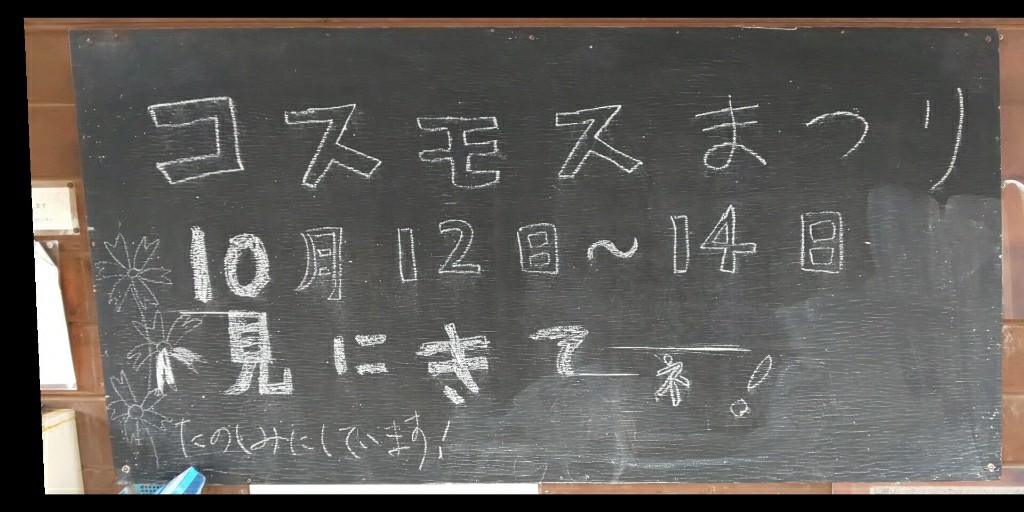 コスモスまつり
10月12日～14日
見にきてネ!
たのしみにしています!